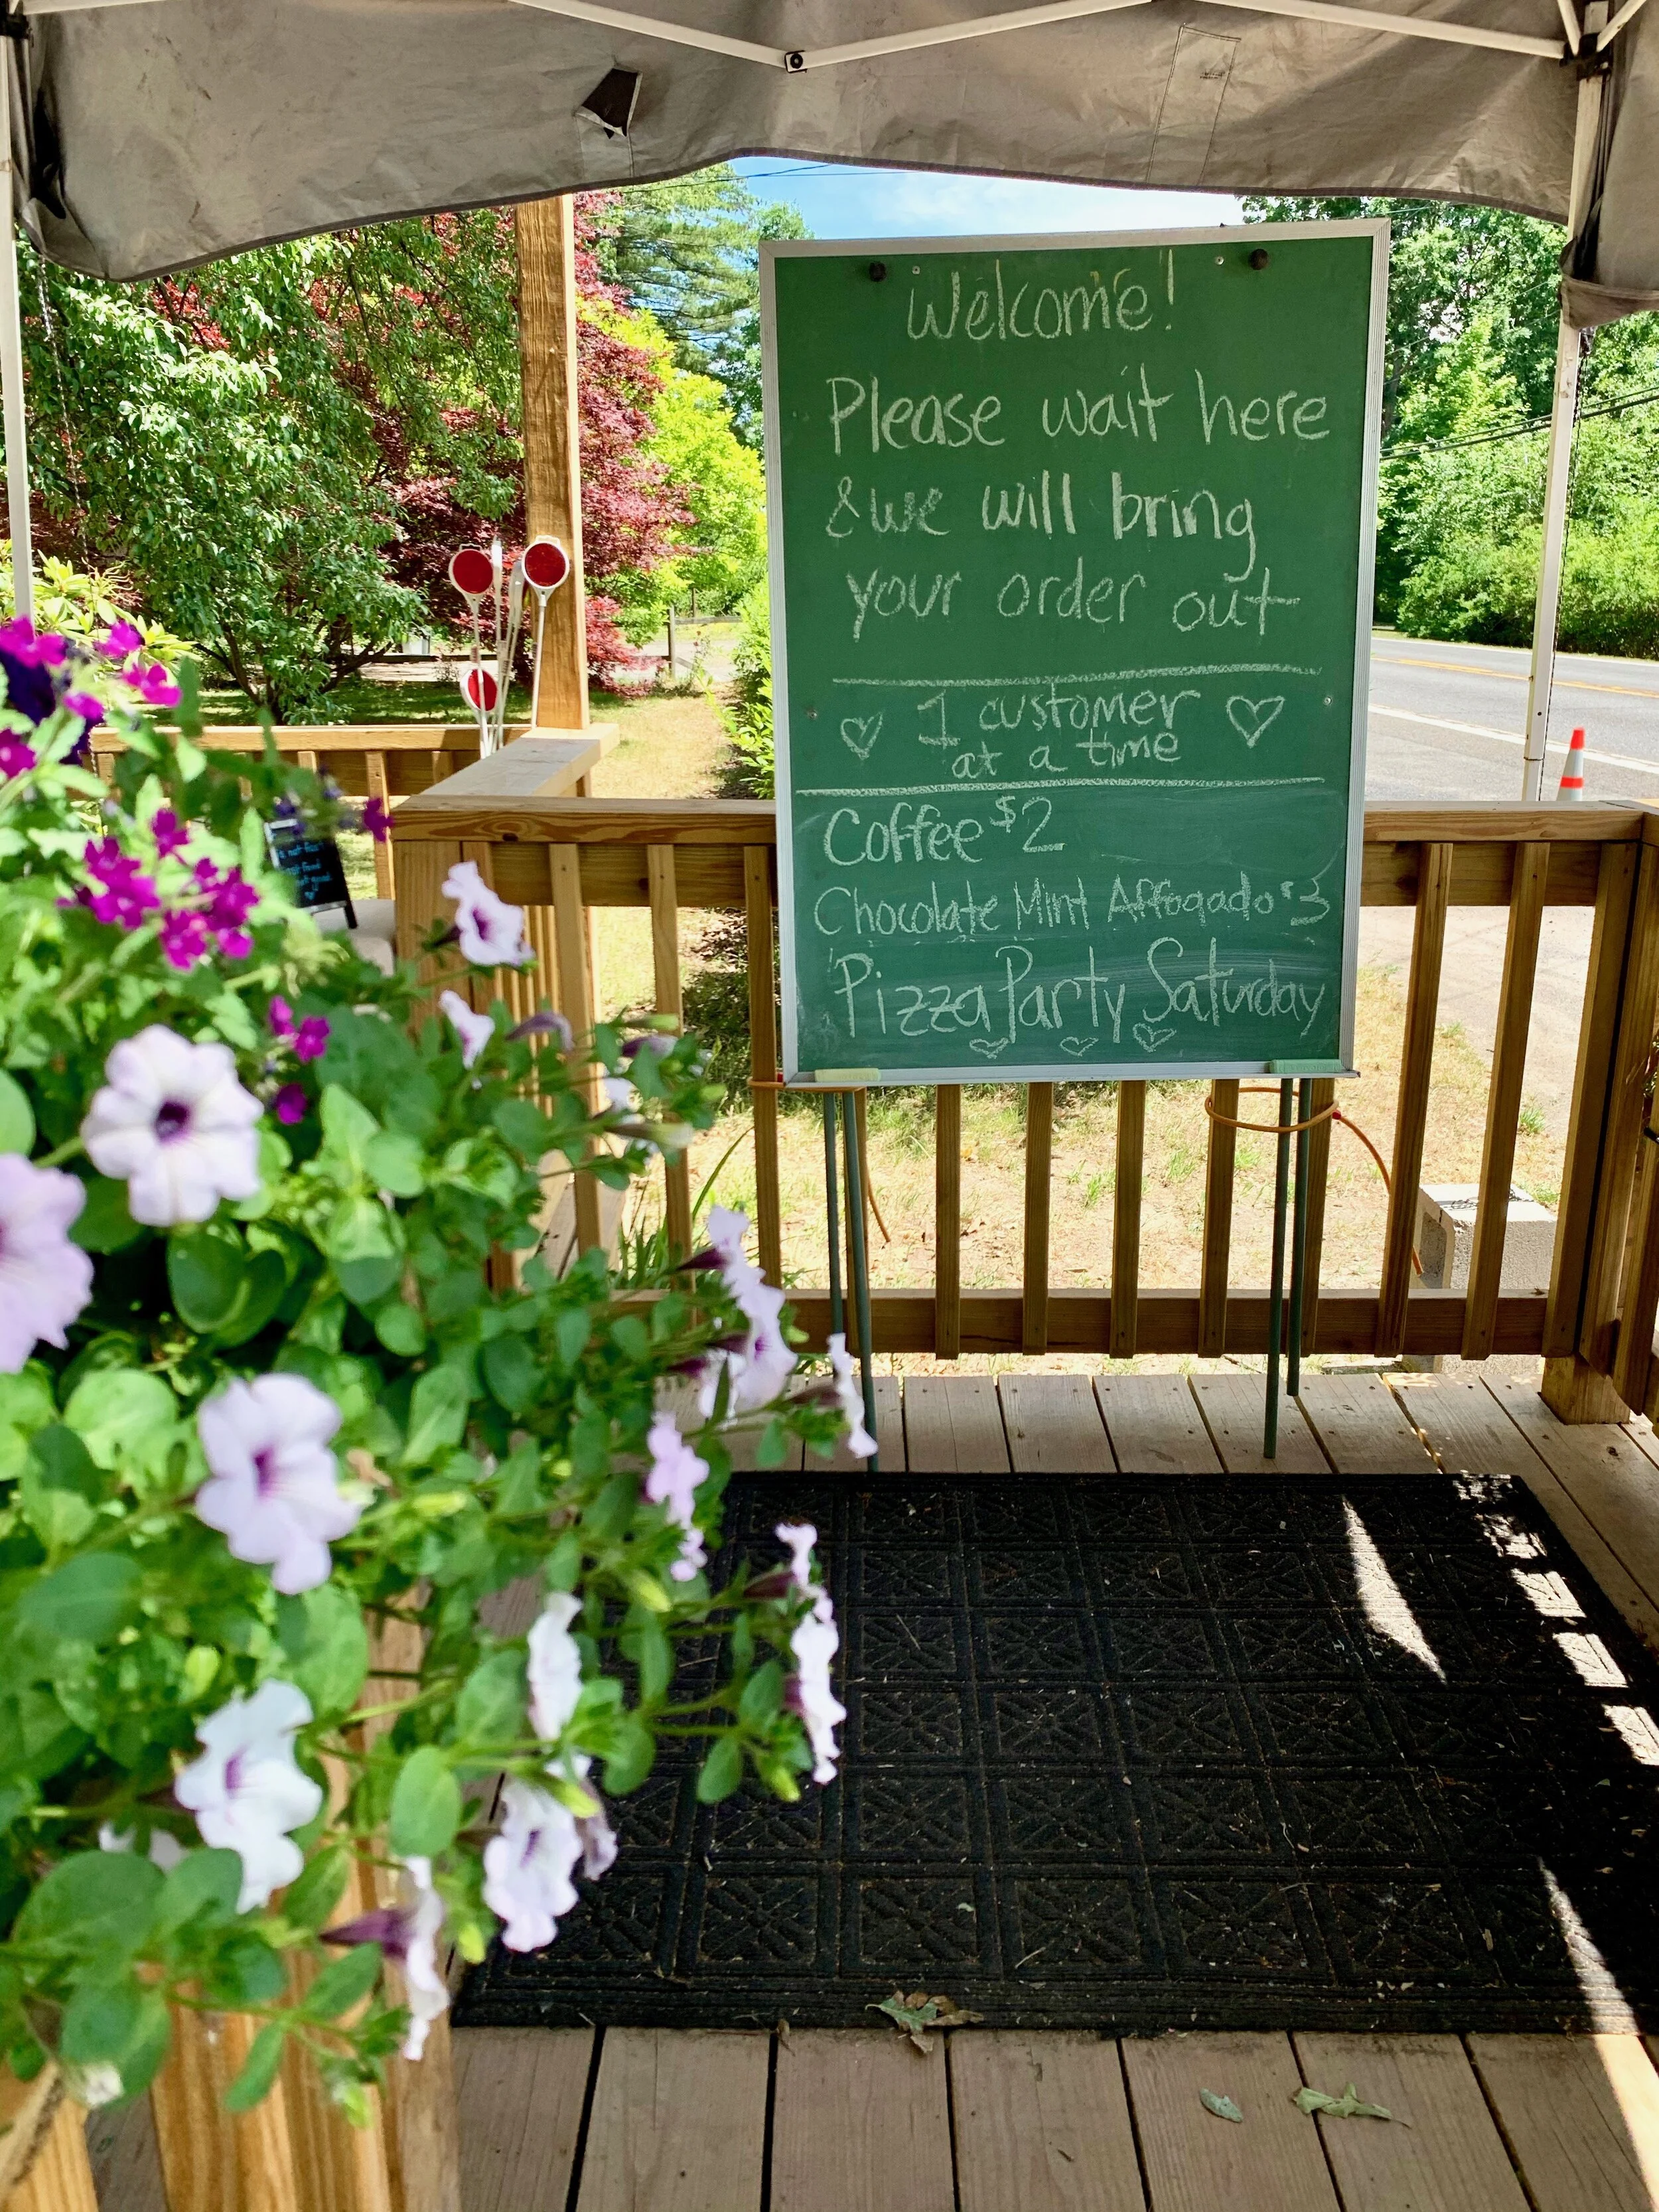 Welcome!
Please wait here
& we will bring
your order out
1 customer
at a time
Coffee $2
Chocolate Mint Affogado $3
Pizza Party Saturday